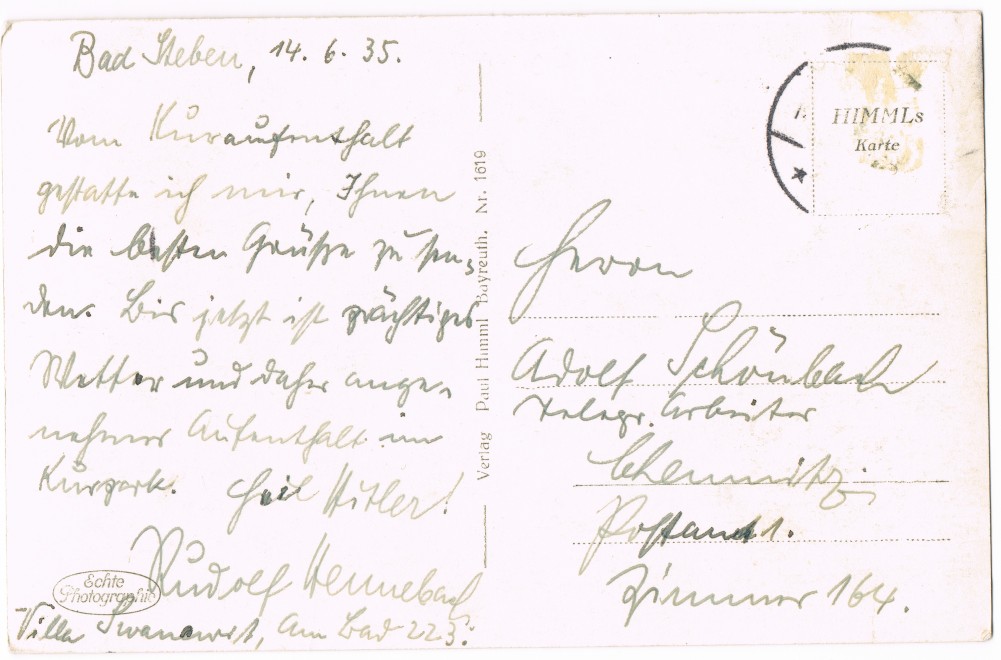 Bad Steben, 14. 6. 35.
Vom Kuraufenthalt
gestatte ich mir, Ihnen
die besten Grüße zu sen-
den. Bis jetzt ist prächtiges
Wetter und daher ange-
nehmer Aufenthalt im
Kurpark. Heil Hitler!
Rudolf Hennebach
Villa am Bad 223.
Echte
Photographie
Verlag Paul Himml Bayreuth. Nr. 1619
HIMMLs
Karte
Herrn
Adolf Schönbach
Telegr. Arbeiter
Chemnitz
Postamt 1.
Zimmer 164.